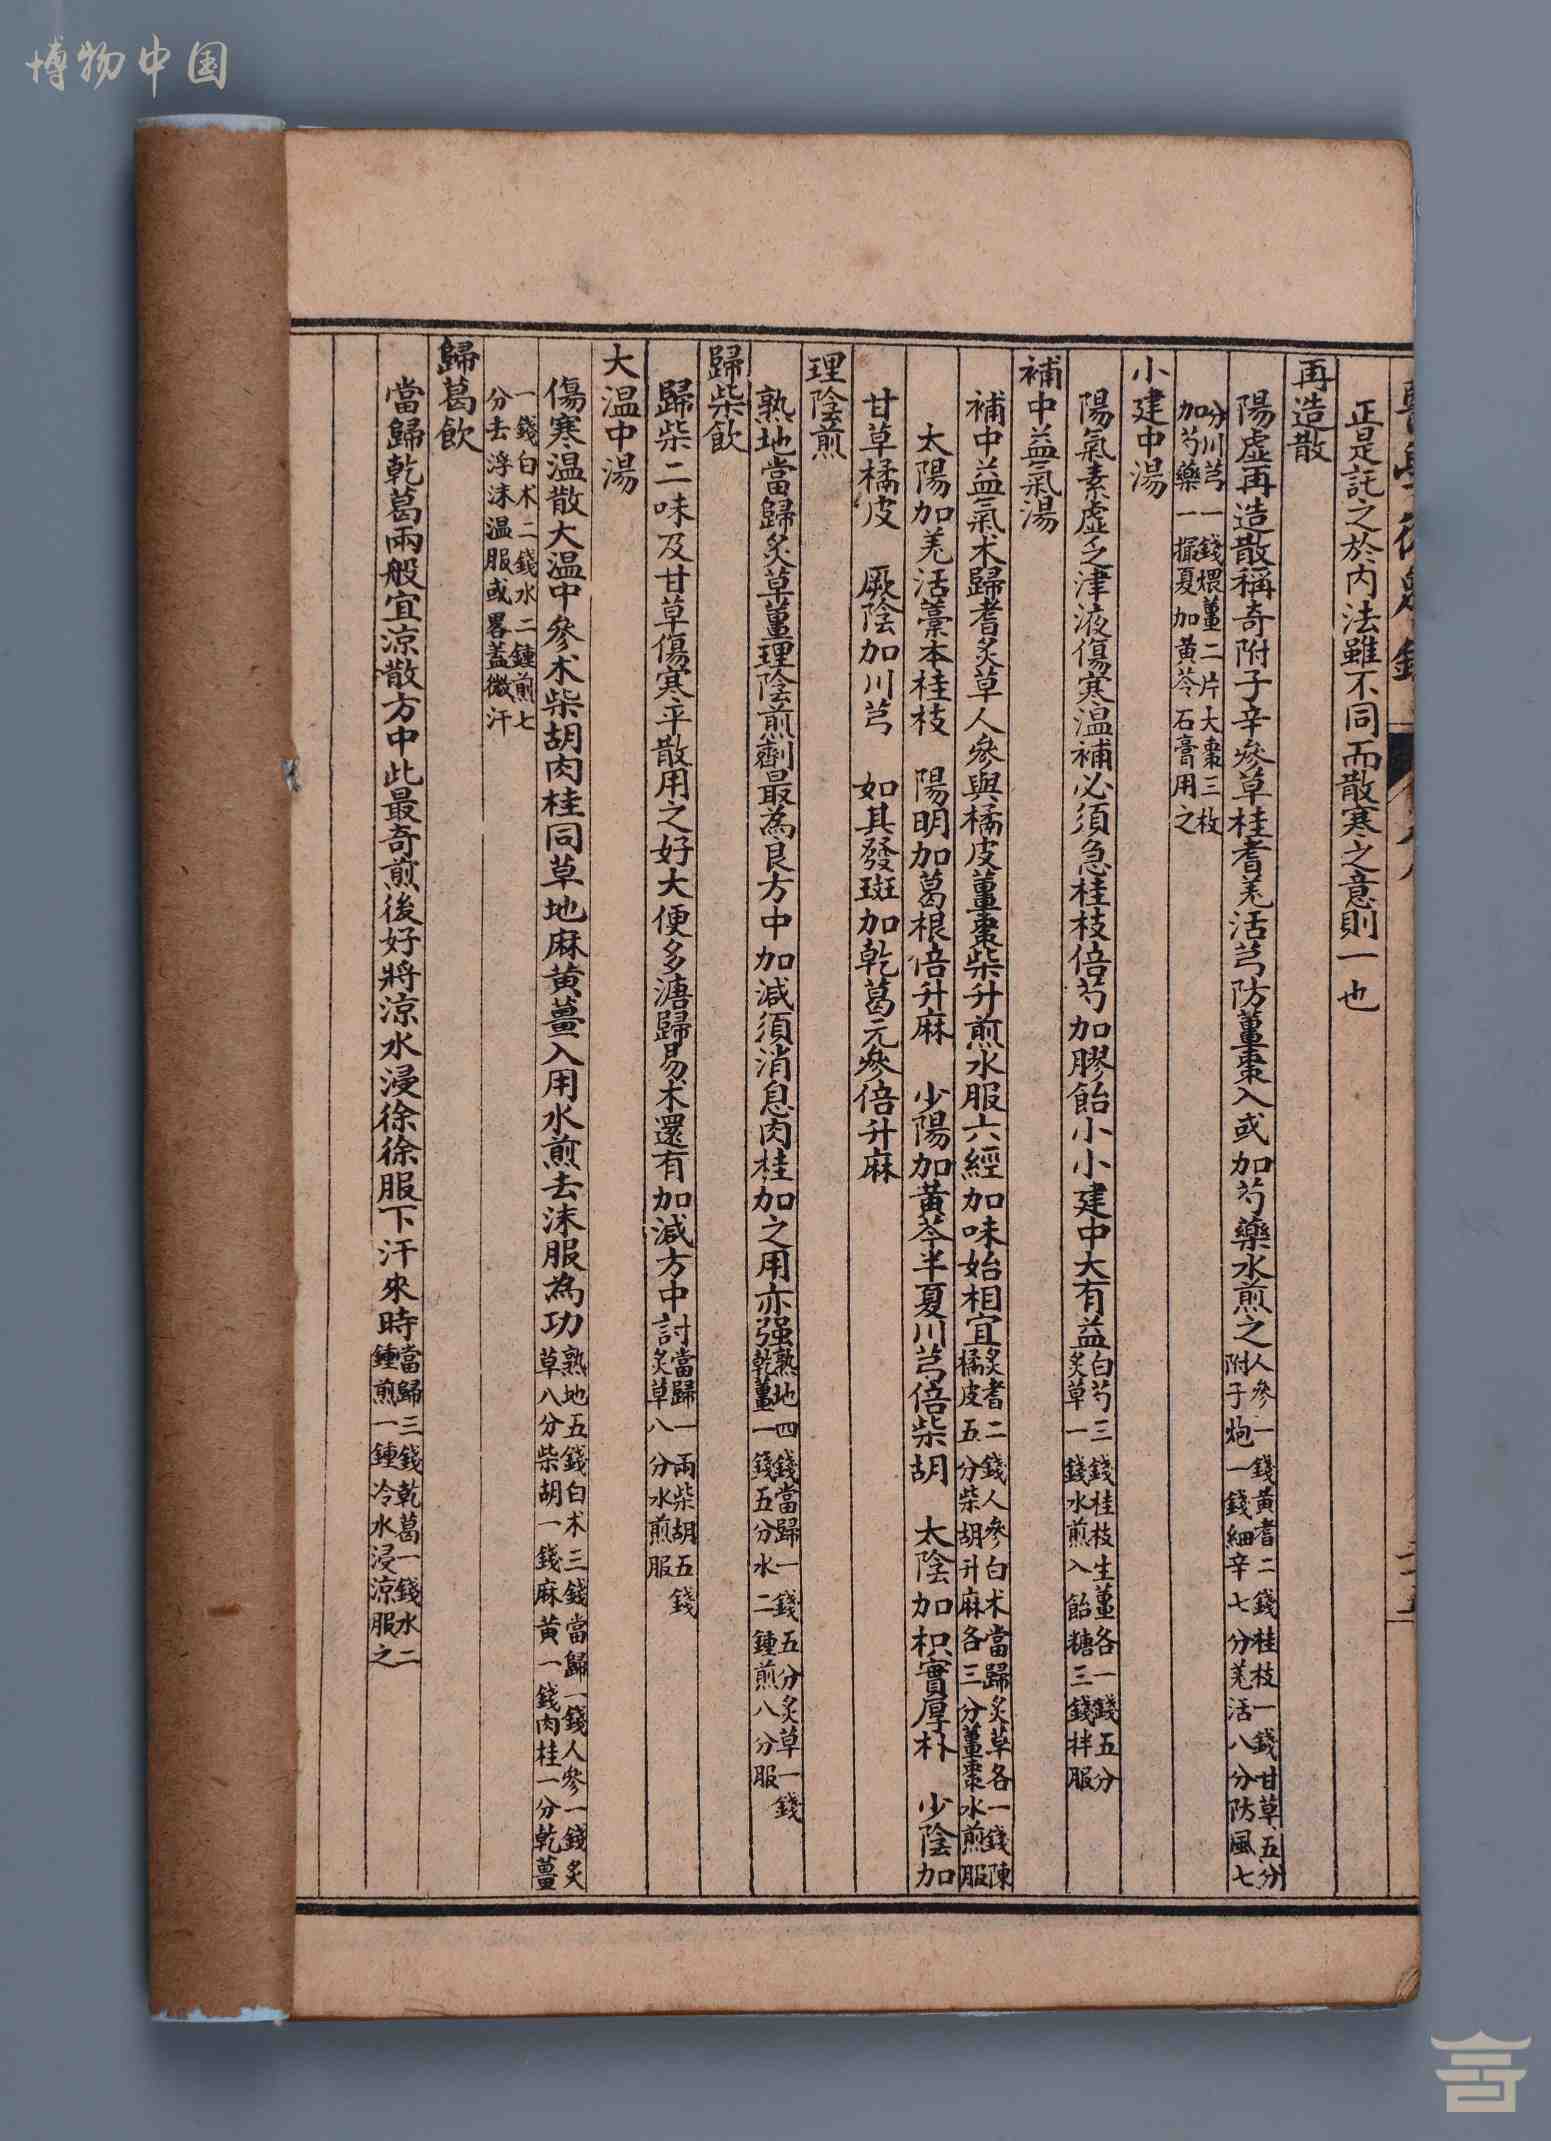 博物中国
正是託之於內法雖不同而散寒之意則一也
再造散
陽虛再造散稱奇附子辛參草桂耆羌活芎防薑棗入或加芍藥水煎之
人參一錢黃耆二錢桂枝一錢甘草五分
附子炮一錢細辛七分羌活八分防風七
分川芎一錢煨薑二片大棗三枚
加芍藥一撮夏加黃芩石膏用之
小建中湯
陽氣素虛乏津液傷寒溫補必須急桂枝倍芍加膠飴小小建中大有益
白芍三錢桂枝生薑各一錢五分
炙草一錢水煎入飴糖三錢拌服
補中益氣湯
補中益氣术歸耆炙草人參與橘皮薑棗柴升煎水服六經加味始相宜
炙耆二錢人參白术當歸炙草各一錢陳
橘皮五分柴胡升麻各三分薑棗水煎服
太陽加羌活藁本桂枝　陽明加葛根倍升麻　少陽加黃芩半夏川芎倍柴胡　太陰加枳實厚朴　少陰加
甘草橘皮　厥陰加川芎　如其發斑加乾葛元參倍升麻
理陰煎
熟地當歸炙草薑理陰煎劑最為良方中加減須消息肉桂加之用亦强
熟地四錢當歸一錢五分炙草一錢
乾薑一錢五分水二鍾煎八分服
歸柴飲
歸柴二味及甘草傷寒平散用之好大便多溏歸易术還有加減方中討
當歸一兩柴胡五錢
炙草八分水煎服
大溫中湯
傷寒溫散大溫中參术柴胡肉桂同草地麻黃薑入用水煎去沫服為功
熟地五錢白术三錢當歸一錢人參一錢炙
草八分柴胡一錢麻黃一錢肉桂一分乾薑
一錢白术二錢水二鍾煎七
分去浮沫溫服或畧蓋微汗
歸葛飲
當歸乾葛兩般宜涼散方中此最奇煎後好將涼水浸徐徐服下汗來時
當歸三錢乾葛一錢水二
鍾煎一鍾冷水浸涼服之